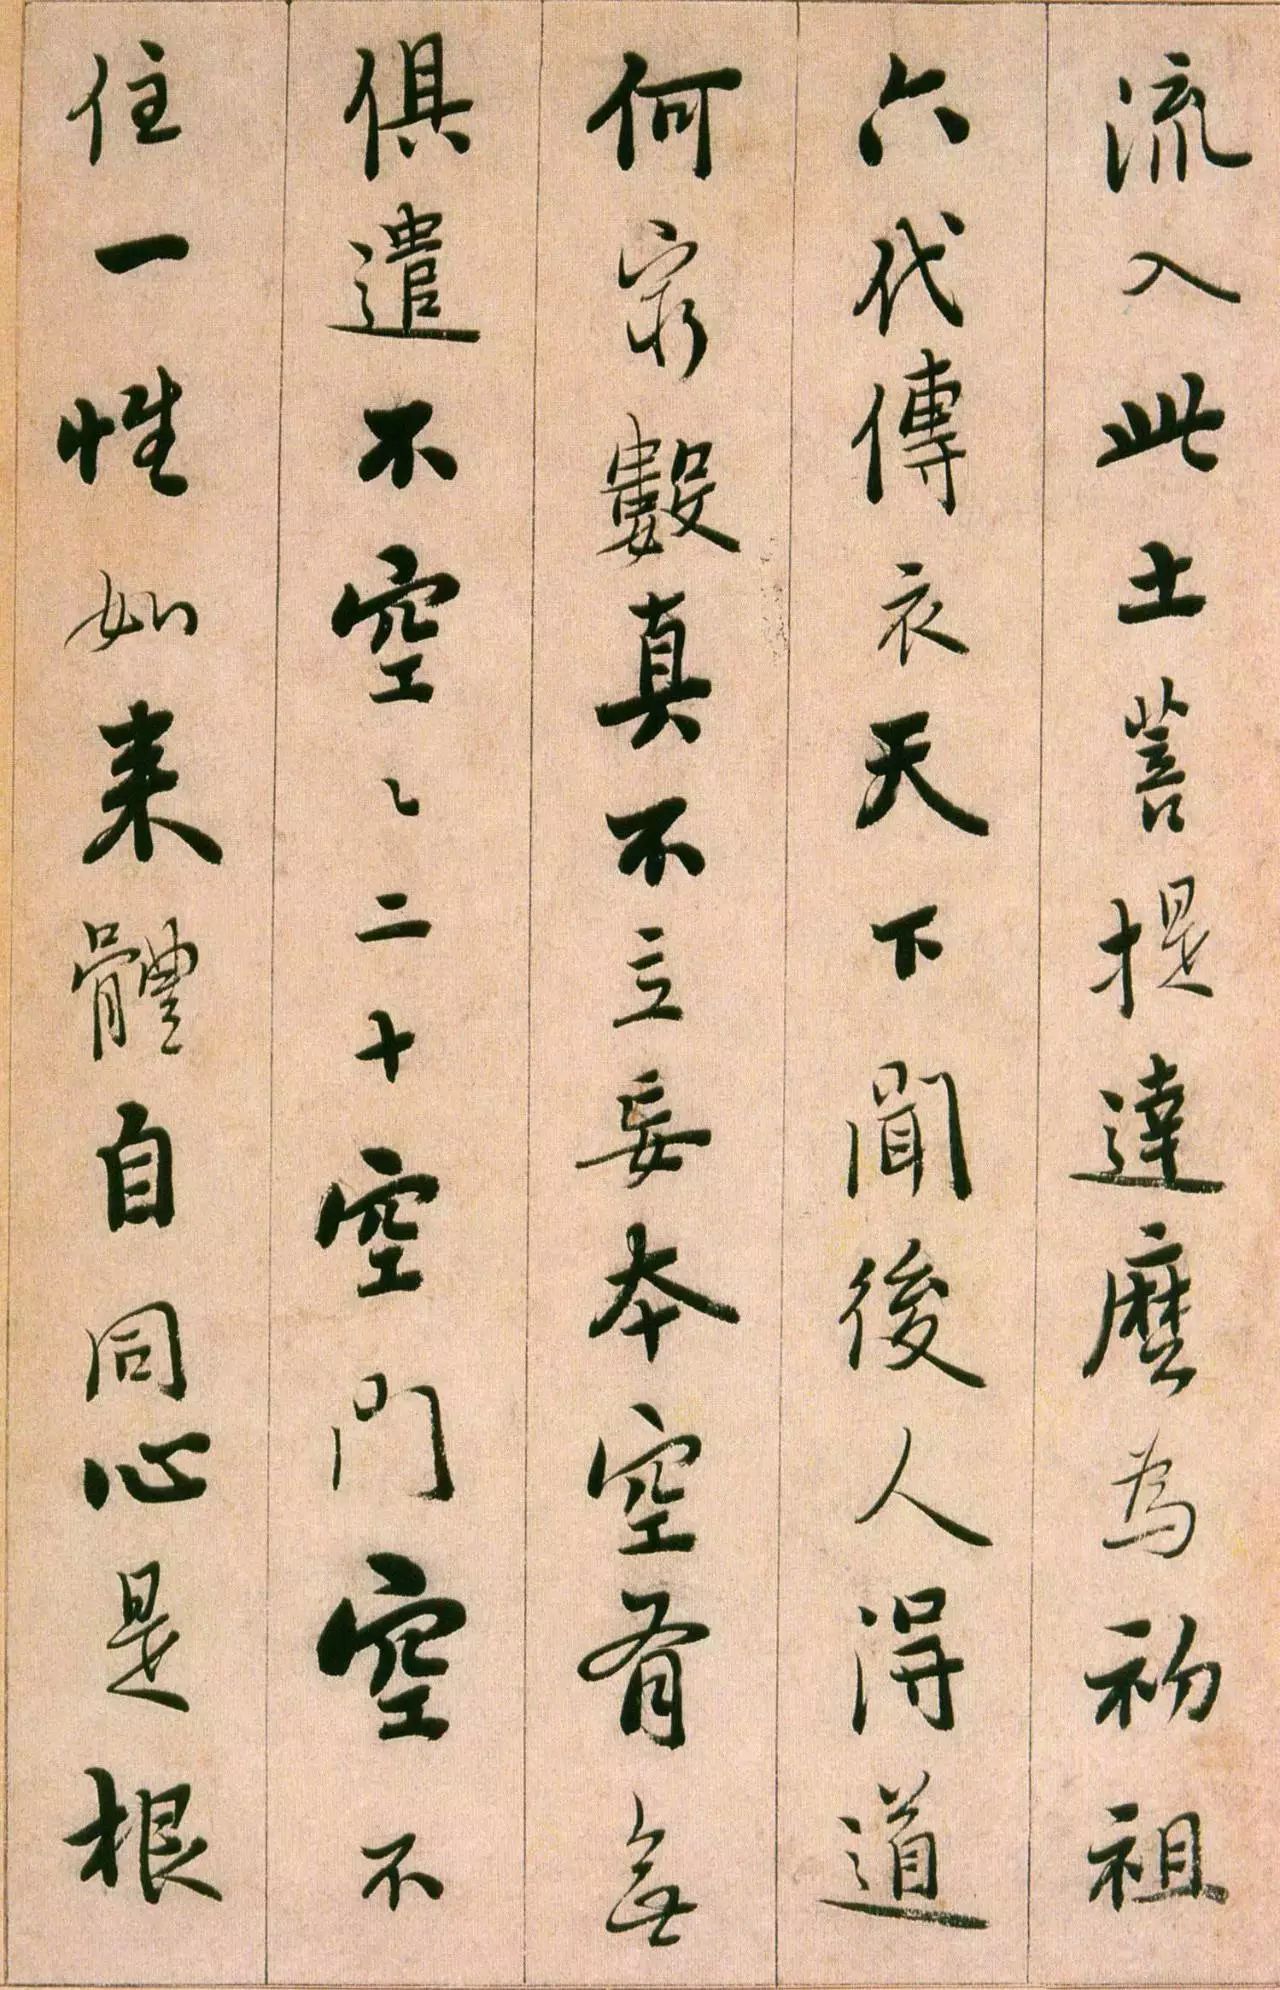 流入此土菩提達麼為初祖
六代傳衣天下聞後人得道
何窮數真不立妄本空有無
俱遣不空〻二十空門空不
住一性如来體自同心是根